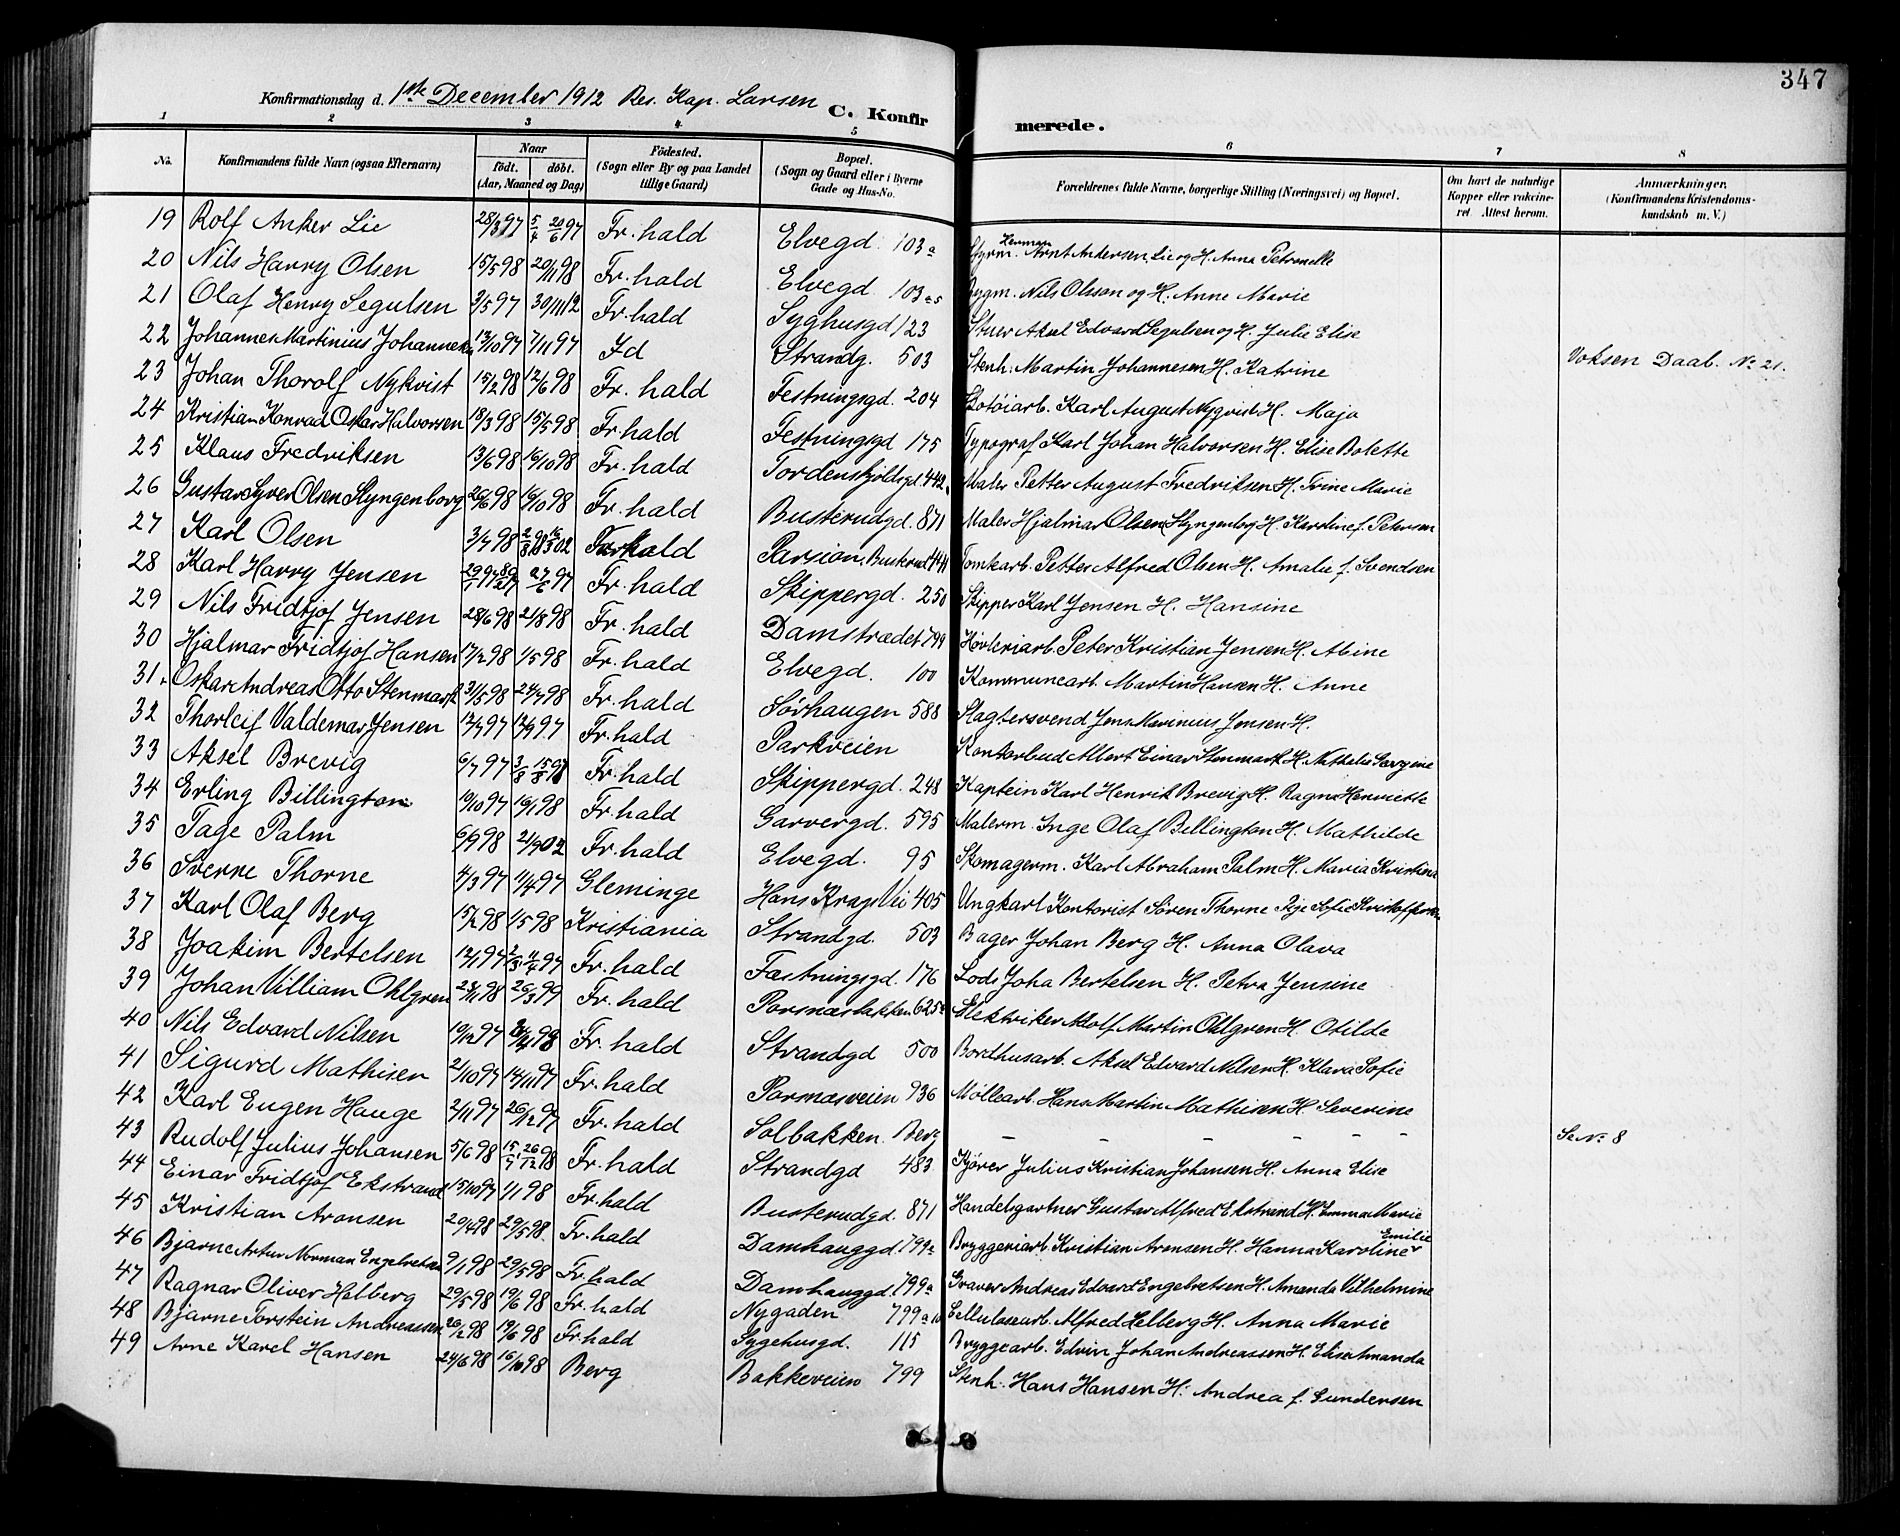 347
Konfirmationsdag d. 1ste December 1912 Res. Kap. Larsen
C. Konfirmerede.
1 2 3 4 5 6 7 8
No. Konfirmandens fulde Navn (ogsaa Efternavn) Naar født. døbt. (Aar, Maaned og Dag) Fødested. (Sogn eller By og paa Landet tillige Gaard) Bopæl. (Sogn og Gaard eller i Byerne Gade og Hus-No. Forældrenes fulde Navne, borgerlige Stilling (Næringsvei) og Bopæl. Om havt de naturlige Kopper eller vakcineret. Attest herom. Anmærkninger. (Konfirmandens Kristendomskundskab m. V.)
19 Rolf Anker Lie 28/3 97 5/4 20/6 97 Fr.hald Elvegd. 103a Styrm. Arnt Andersen Lie og H. Anna Petronelle
20 Nils Harry Olsen 15/5 98 20/11 98 Fr.hald Elvegd 103 Bygm. Nils Olsson og H. Anne Marie
21 Olaf Henry Segulsen 3/5 97 30/11 12 Fr.hald Syghusgd 123 Stuer Aksel Edvard Segulsen og H. Julie Elise Voksen Daab. No 21.
22 Johannes Martinius Johannesen 13/10 97 7/11 97 Id Strandg. 503 Stenh. Martin Johannesen H. Katrine
23 Johan Thorolf Nykvist 15/2 98 12/6 98 Fr.hald Festningsgd. 204 Skotøiarb. Karl August Nyqvist H. Maja
24 Kristian Konrad Oskar Halvorsen 18/3 98 15/5 98 Fr.hald Festningsgd 175 Typograf Karl Johan Halvorsen H. Elise Bolette
25 Klaus Fredriksen 13/6 98 16/10 98 Fr.hald Tordenskjoldsgd. 442 Maler Petter August Fredriksen H. Trine Marie
26 Gustav Syver Olsen Slyngenborg 26/6 98 16/10 98 Fr.hald Busterudgd. 871 Maler Hjalmar Olsen Slyngenborg H. Karoline f. Petersen
27 Karl Olsen 3/7 98 Fr.hald Parsion. Buskrud 444 Tomtarb. Petter Alfred Olsen H. Amalie f. Svendsen
28 Karl Harry Jensen 27/6 97 Fr.hald Skippergd. 250 Skipper Karl Jensen H. Hansine
29 Nils Fridtjof Jensen 28/6 98 21/8 98 Fr.hald Damstrædet 799 Høvleriarb. Peter Kristian Jensen H. Mine
30 Hjalmar Fridtjof Hansen 17/2 98 1/5 98 Fr.hald Elvegd. 100 Kommunearb. Martin Hansen H. Anne
31. Oskar Andreas Otto Stenmark 31/5 98 24/7 98 Fr.hald Sørhaugen 588 Slagtersvend Jens Marinius Jensen H.
32 Thorleif Valdemar Jensen 12/7 97 12/9 97 Fr.hald Parkveien Kontorbud Albert Einar Stenmark H. Nathalie Georgine
33 Aksel Brevig 6/7 97 3/8 15/8 97 Fr.hald Skippergd. 248 Kaptein Karl Henrik Brevig H. Ragna Henriette
34 Erling Billington 19/10 97 16/1 98 Fr.hald Garvergd. 595 Malerm. Inge Olaf Billington H. Mathilde
35 Tage Palm 6/9 98 21/9 02 Fr.hald Elvegd. 95 Skomagerm. Karl Abraham Palm H. Maria Kristina
36 Sverre Thorne 4/3 97 11/4 97 Gleminge Hans Krags Vei 405 Ungkarl Kontorist Søren Thorne Pige Sofie Kristoffersen
37 Karl Olaf Berg 15/2 98 1/5 98 Kristiania Strandgd. 503 Bager Johan Berg H. Anna Olava
38 Joakim Bertelsen 12/1 97 2/3 11/4 97 Fr.hald Fæstningsgd. 176 Lods Joha Bertelsen H. Petra Jensine
39 Johan Villiam Ohlgren 23/11 98 26/3 99 Fr.hald Porsnæsbakken 625 Elektriker Adolf Martin Ohlgren H. Otilde
40 Nils Edvard Nilsen 19/12 97 98 Fr.hald Strandgd 500 Bordhusarb. Aksel Edvard Nilsen H. Klara Sofie
41 Sigurd Mathisen 2/10 97 14/11 97 Fr.hald Porsnæsveien 936 Møllearb. Hans Martin Mathisen H. Severine
42 Karl Eugen Hauge 2/11 97 26/12 97 Fr.hald Solbakken. Berg - - - - - - Se No 8
43 Rudolf Julius Johansen 5/6 98 15/7 26/12 98 Fr.hald Strandgd 483 Kjører Julius Kristian Johansen H. Anna Elise
44 Einar Fridtjof Ekstrand 15/10 97 1/1 98 Fr.hald Busterudgd. 871 Handelsgartner Gustav Alfred Ekstrand H. Emma Marie
45 Kristian Aronsen 20/4 98 29/5 98. Fr.hald Damhauggd 799a Bryggeriarb. Kristian Aronsen H. Hanna Karoline Emilie
46 Bjarne Artur Norman Engebretsen 9/1 98 29/5 98 Fr.hald Damhauggd. 799a Graver Andreas Edvard Engebretsen H. Amanda Vilhelmine
47 Ragnar Oliver Helberg 29/5 98 19/6 98 Fr.hald Nygaden 799a Cellulosearb. Alfred Helberg H. Anna Marie
48 Bjarne Torstein Andreassen 26/2 98 19/6 98 Fr.hald Sygehusgd. 115 Bryggearb. Edvin Johan Andreassen H. Elise Amanda
49 Arne Karel Hansen 24/6 98 16/10 98 Berg Bakkeveien 799 Stenh. Hans Hansen H. Andrea f. Gundersen